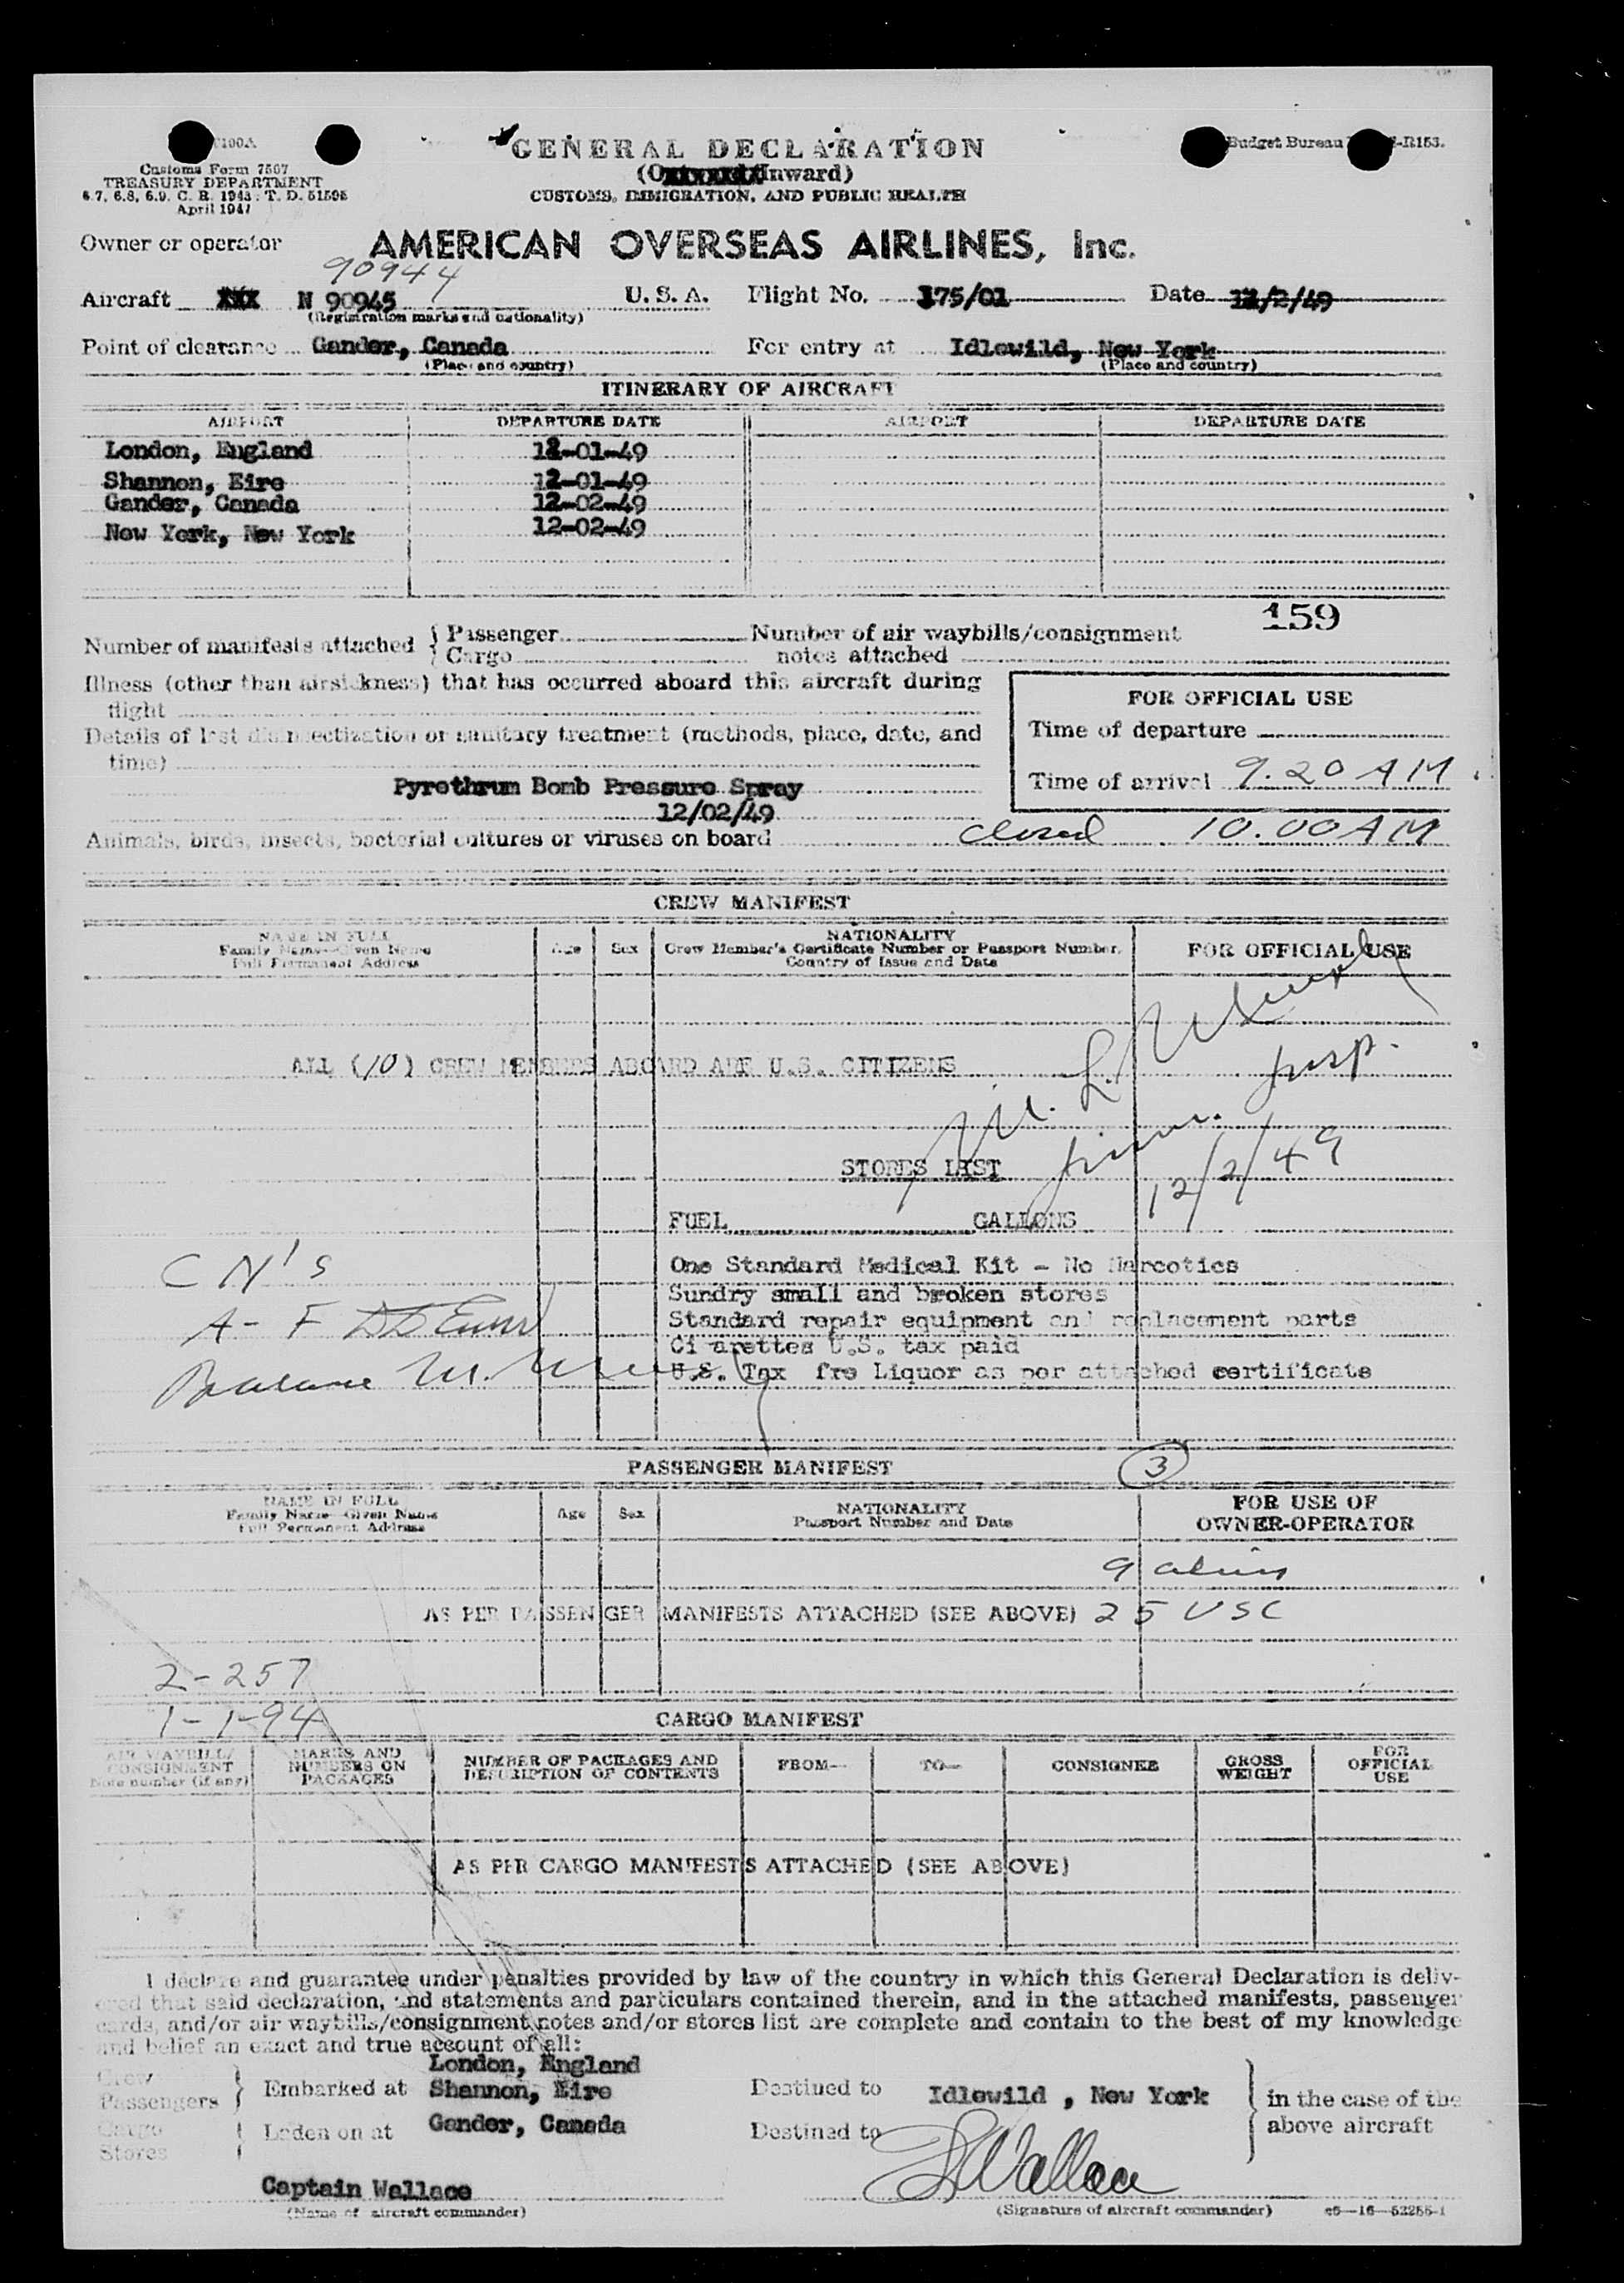 GENERAL DECLARATION
Inward)
CUSTOMS, IMMIGRATION, AND PUBLIC HEALTH
Customs Form 7507
TREASURY DEPARTMENT
6.7, 6.8, 6.9, C. R. 1943: T. D. 51595
April 1947
Budget Bureau -R153.
Owner or operator AMERICAN OVERSEAS AIRLINES, Inc.
90944
Aircraft XXX N 90945 U. S. A. Flight No. 175/01 Date 12/2/49
(Registration marks and nationality)
Point of clearance Gander, Canada For entry at Idlewild, New York
(Place and country) (Place and country)
ITINERARY OF AIRCRAFT
AIRPORT DEPARTURE DATE AIRPORT DEPARTURE DATE
London, England 12-01-49
Shannon, Eire 12-01-49
Gander, Canada 12-02-49
New York, New York 12-02-49
159
Number of manifests attached { Passenger Number of air waybills/consignment
Cargo notes attached
Illness (other than airsickness) that has occurred aboard this aircraft during
flight
Details of last disinsectization or sanitary treatment (methods, place, date, and
time)
Pyrethrum Bomb Pressure Spray
12/02/49
FOR OFFICIAL USE
Time of departure
Time of arrival 9.20 AM
Animals, birds, insects, bacterial cultures or viruses on board closed 10.00 AM
CREW MANIFEST
NAME IN FULL
Family Name—Given Name
Full Permanent Address
Age Sex
NATIONALITY
Crew Member's Certificate Number or Passport Number,
Country of Issue and Date
FOR OFFICIAL USE
ALL (10) CREW MEMBERS ABOARD ARE U.S. CITIZENS
M. L.
Imm. Insp.
12/2/49
STORES LIST
FUEL GALLONS
One Standard Medical Kit - No Narcotics
Sundry small and broken stores
Standard repair equipment and replacement parts
Ci arettes U.S. tax paid
U.S. Tax fre Liquor as per attached certificate
C N's
A - F
Balance M.
PASSENGER MANIFEST 3
NAME IN FULL
Family Name—Given Name
Full Permanent Address
Age Sex
NATIONALITY
Passport Number and Date
FOR USE OF
OWNER-OPERATOR
9 aliens
AS PER PASSENGER MANIFESTS ATTACHED (SEE ABOVE) 25 USC
2-257
1-1-94
CARGO MANIFEST
AIR WAYBILL/
CONSIGNMENT
Note number (if any)
MARKS AND
NUMBERS ON
PACKAGES
NUMBER OF PACKAGES AND
DESCRIPTION OF CONTENTS
FROM— TO— CONSIGNEE
GROSS
WEIGHT
FOR
OFFICIAL
USE
AS PER CARGO MANIFESTS ATTACHED (SEE ABOVE)
I declare and guarantee under penalties provided by law of the country in which this General Declaration is deliv-
ered that said declaration, and statements and particulars contained therein, and in the attached manifests, passenger
cards, and/or air waybills/consignment notes and/or stores list are complete and contain to the best of my knowledge
and belief an exact and true account of all:
London, England
Crew
Passengers } Embarked at Shannon, Eire Destined to Idlewild , New York } in the case of the
Cargo
Stores } Laden on at Gander, Canada Destined to above aircraft
Captain Wallace Wallace
(Name of aircraft commander) (Signature of aircraft commander) c6—16—52255-1